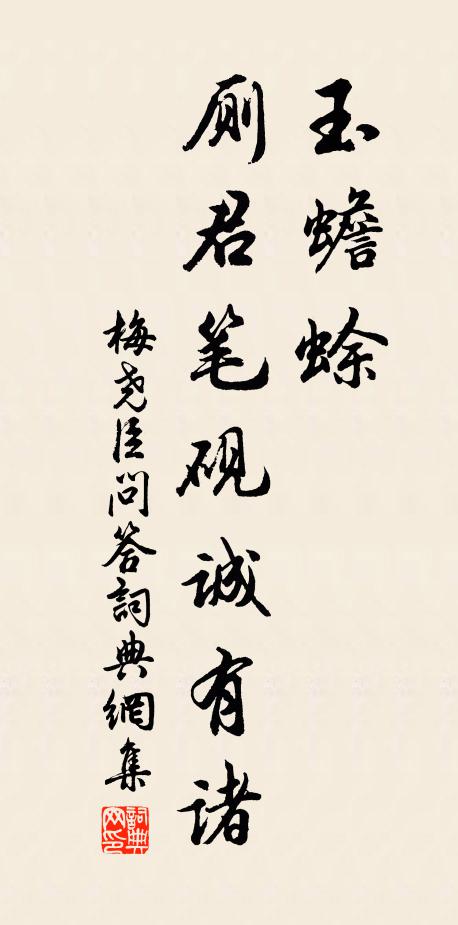 玉蟾蜍
厠君笔砚诚有诸
梅尧臣問答詞典網集
詞典网印